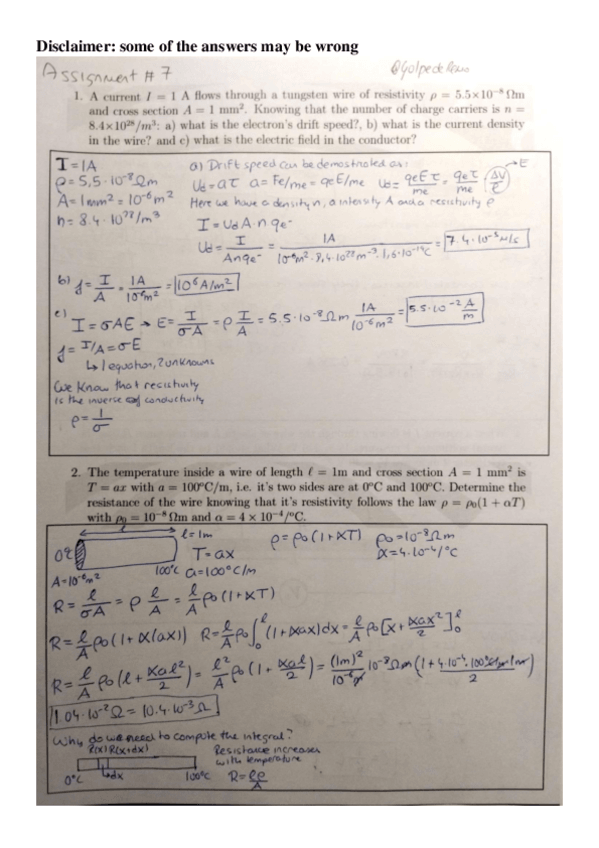 Disclaimer: some of the answers may be wrong
Assignment # 7
1. A current I = 1 A flows through a tungsten wire of resistivity ρ = 5.5×10⁻⁸ Ωm
and cross section A = 1 mm². Knowing that the number of charge carriers is n =
8.4×10²⁸/m³: a) what is the electron's drift speed?, b) what is the current density
in the wire? and c) what is the electric field in the conductor?
I = 1A
ρ = 5,5·10⁻⁸ Ωm
A = 1mm² = 10⁻⁶ m²
n = 8.4·10²⁸/m³
a) Drift speed can be demostrated as:
Ud = aτ a = Fe/me = qeE/me Ud = qeEτ/me = qeτ/me (ΔV/ℓ) → E
Here we have a density n, a intensity A and a resistivity ρ
I = Ud A·n qe⁻
Ud = I/Anqe⁻ = 1A/10⁻⁶m²·8,4·10²⁸m⁻³·1,6·10⁻¹⁹C = 7.4·10⁻⁵ m/s
b) J = I/A = 1A/10⁻⁶m² = 10⁶ A/m²
c) I = σAE → E = I/σA = ρ I/A = 5.5·10⁻⁸Ωm 1A/10⁻⁶m² = 5.5·10⁻² A/m
J = I/A = σE
↳ 1 equation, 2 unknowns
We know that resistivity
is the inverse of conductivity
ρ = 1/σ
2. The temperature inside a wire of length ℓ = 1m and cross section A = 1 mm² is
T = ax with a = 100°C/m, i.e. it's two sides are at 0°C and 100°C. Determine the
resistance of the wire knowing that it's resistivity follows the law ρ = ρ₀(1 + αT)
with ρ₀ = 10⁻⁸ Ωm and α = 4 × 10⁻⁴/°C.
ℓ
ℓ = 1m
0°C
100°C
A = 10⁻⁶m²
T = ax
a = 100°C/m
ρ = ρ₀(1+αT)
ρ₀ = 10⁻⁸ Ωm
α = 4·10⁻⁴/°C
R = ℓ/σA = ρ ℓ/A = ℓ/A ρ₀(1+αT)
R = ℓ/A ρ₀(1+α(ax)) R = ℓ/A ρ₀ ∫₀ˡ (1+αax)dx = ℓ/A ρ₀ [x + αax²/2]₀ˡ
R = ℓ/A ρ₀(ℓ + αaℓ²/2) = ℓ²/A ρ₀(1 + αaℓ/2) = (1m)²/10⁻⁶ 10⁻⁸Ωm (1 + 4·10⁻⁴·100/2) =
1.04·10⁻²Ω = 10.4·10⁻³Ω
Why do we need to compute the integral?
R(x) R(x+dx)
0°C dx 100°C
Resistance increases
with temperature
R = ℓρ/A